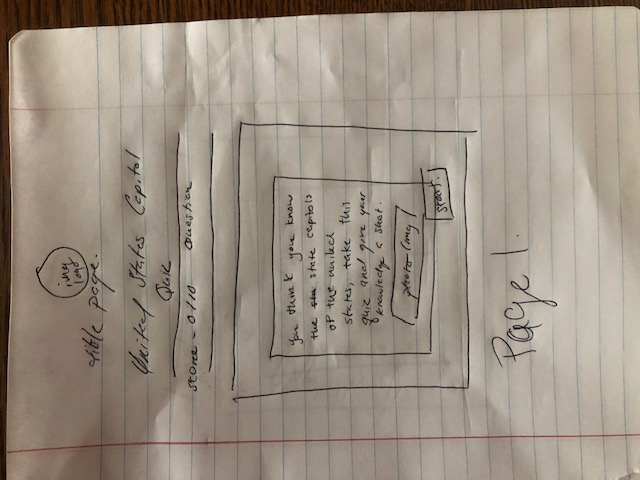 img
logo
title page.
United States Capitol
Quiz
score - 0/10 Question
You think you know
the state capitols
of the united
states, take this
quiz and give your
knowledge a shot.
photo/img
start.
Page 1.